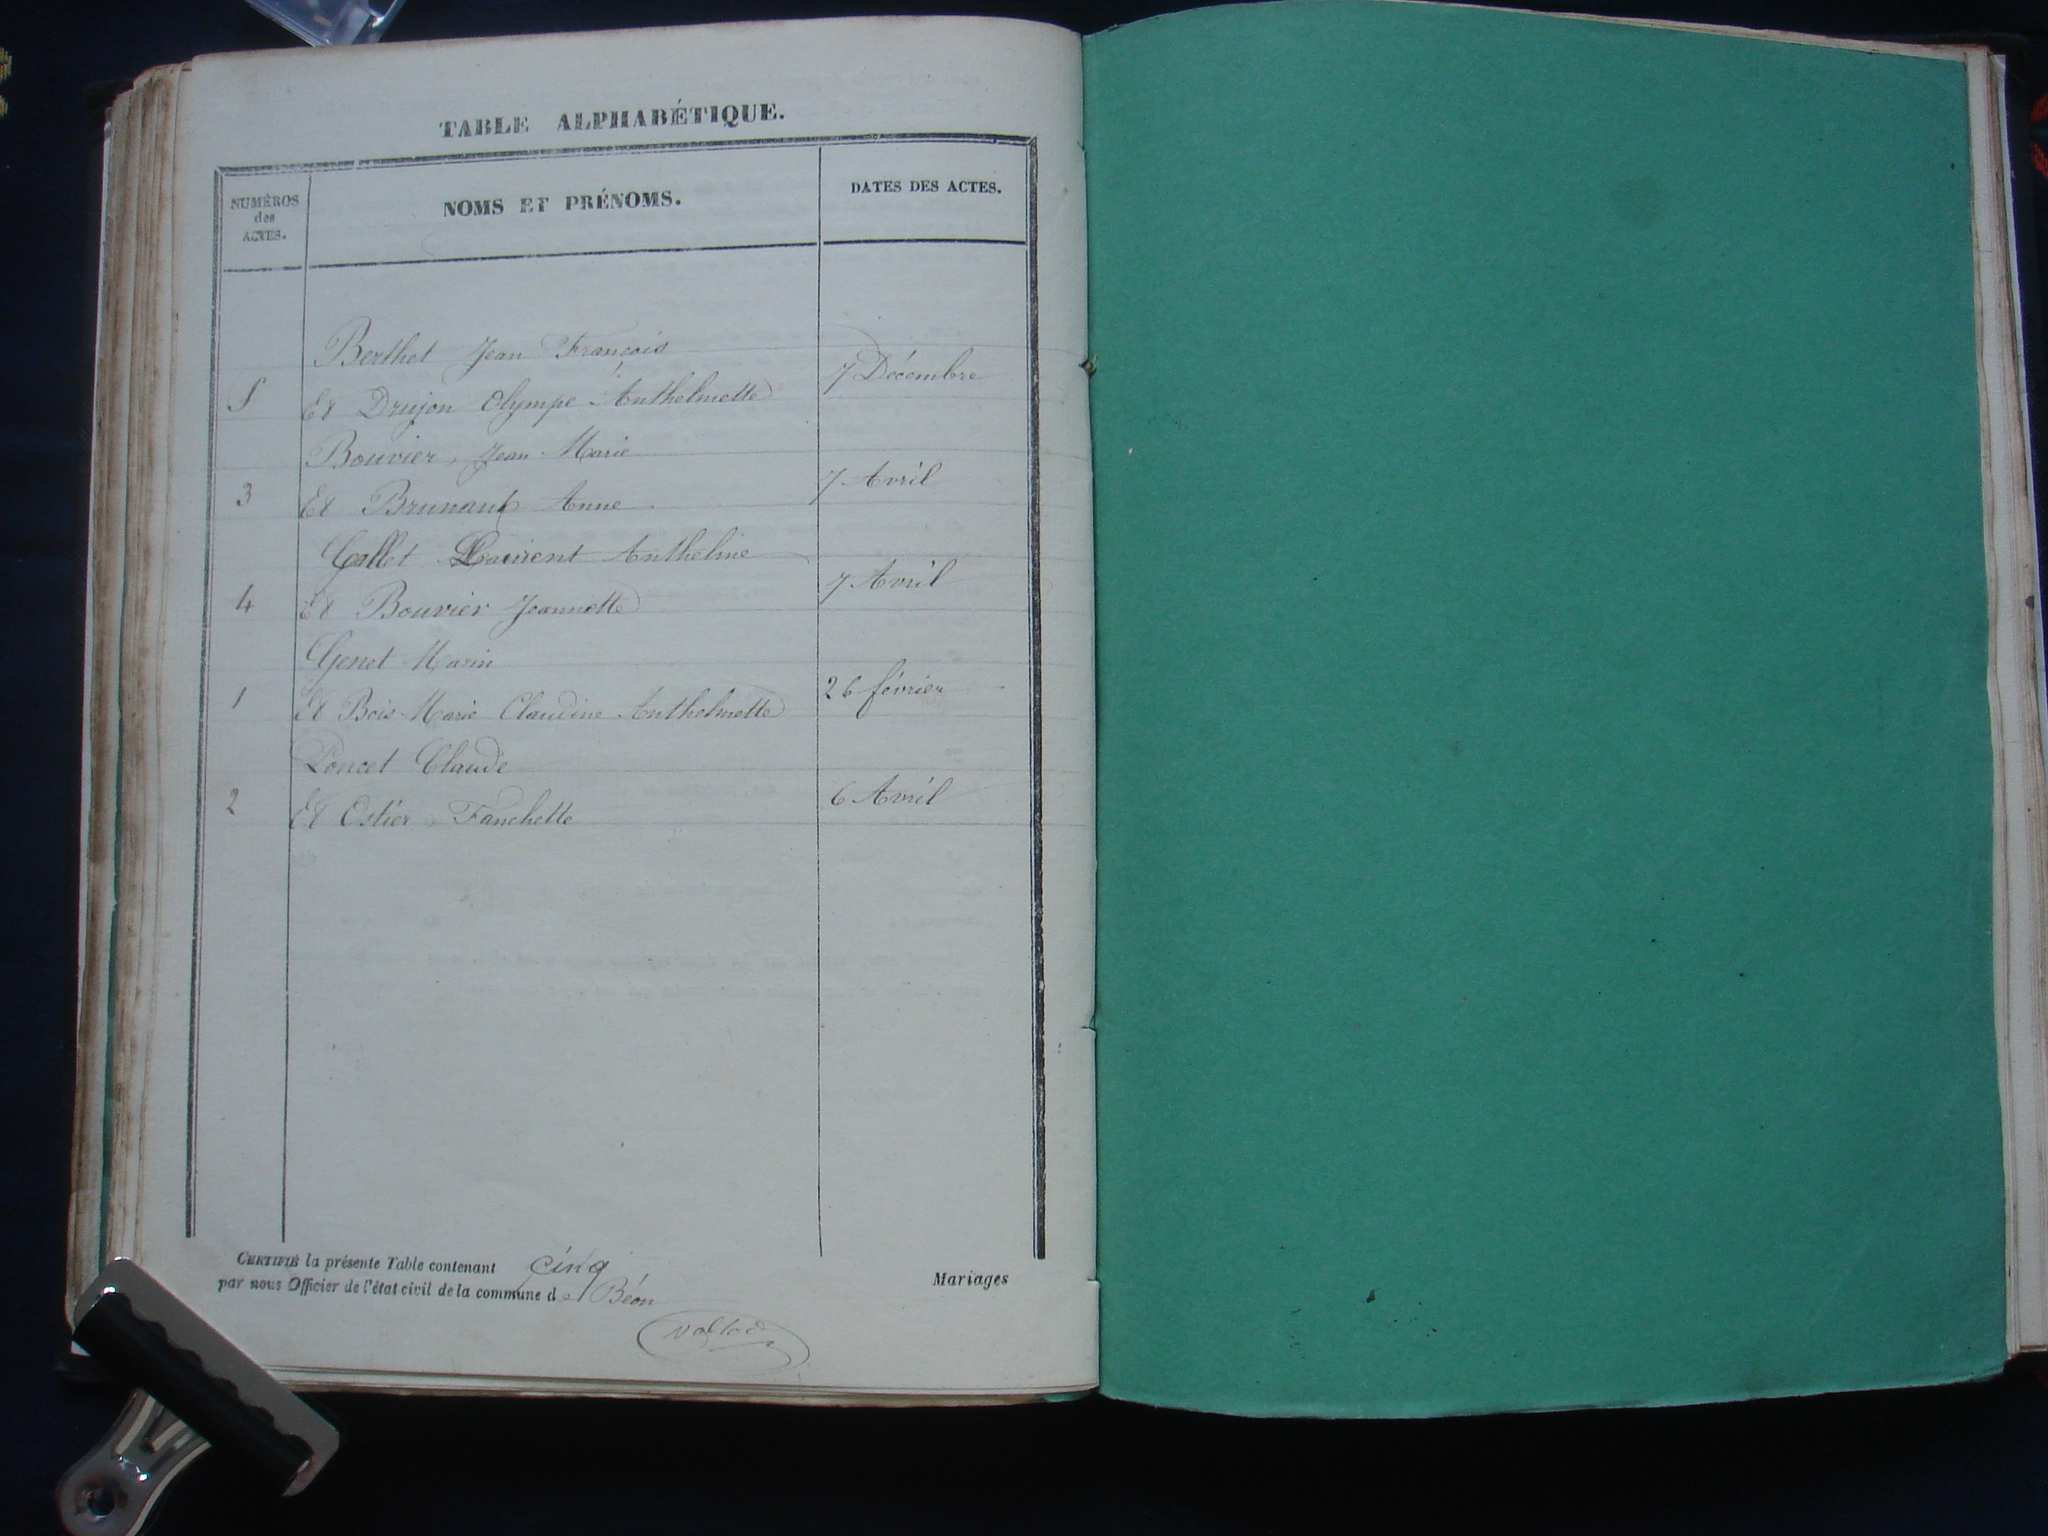 TABLE ALPHABÉTIQUE.
NUMÉROS
des
ACTES.
NOMS ET PRÉNOMS.
DATES DES ACTES.
Berthet Jean François
5 Et Drujon Olympe Anthelmette 7 Décembre
Bouvier, Jean Marie
3 Et Brunand Anne 7 Avril
Gallet Laurent Anthelme
4 Et Bouvier Jeannette 7 Avril
Genet Marin
1 Et Bois Marie Claudine Anthelmette 26 février
Poncet Claude
2 Et Ostier Fanchette 6 Avril
CERTIFIÉ la présente Table contenant cinq Mariages
par nous Officier de l'état civil de la commune de Béon